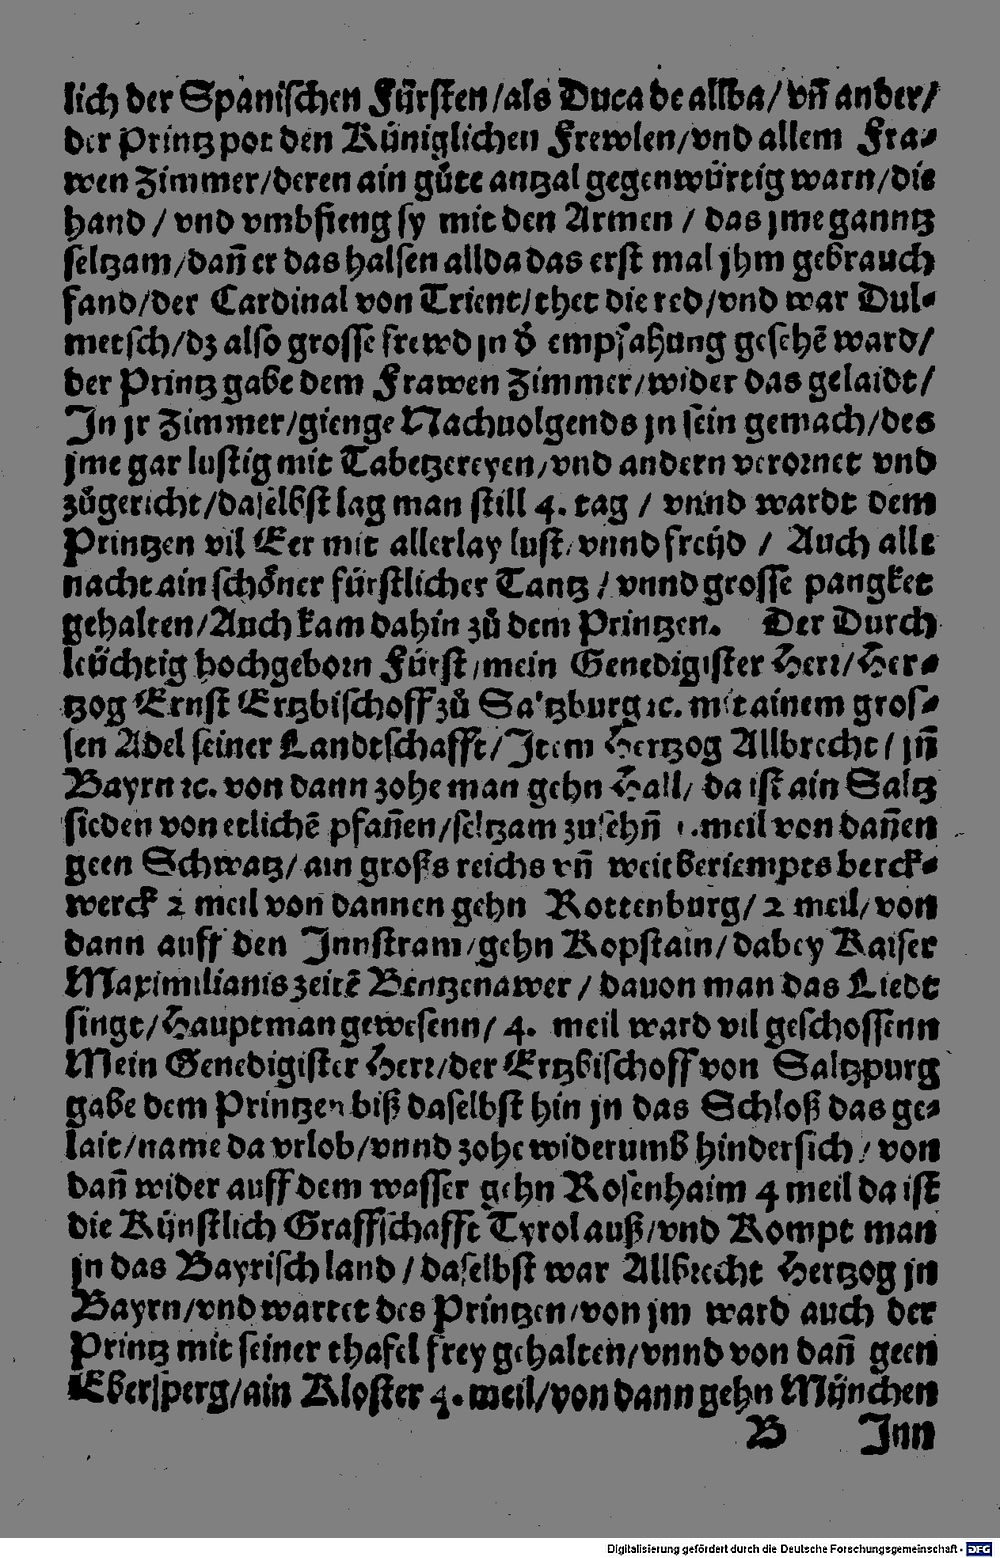 lich der Spanischen Fürsten/als Duca de allba/vn̄ ander/
der Printz pot den Küniglichen Frewlen/vnd allem Fra⸗
wen Zimmer/deren ain gůte antzal gegenwürtig warn/die
hand / vnd vmbfieng sy mit den Armen / das jme ganntz
seltzam/dan̄ er das halsen allda das erst mal jhm gebrauch
fand/der Cardinal von Trient/thet die red/vnd war Dul⸗
metsch/dz also grosse frewd jn d̄ empfahung geschē ward/
der Printz gabe dem Frawen Zimmer/wider das gelaidt/
In jr Zimmer/gienge Nachuolgends jn sein gemach/des
jme gar lustig mit Tabetzereyen/vnd andern verornet vnd
zůgericht/daselbst lag man still 4. tag / vnnd wardt dem
Printzen vil Eer mit allerlay lust/vnnd freüd / Auch alle
nacht ain schöner fürstlicher Tantz / vnnd grosse pangket
gehalten/Auch kam dahin zů dem Printzen. Der Durch
leüchtig hochgeborn Fürst/mein Genedigister Herr/Her⸗
tzog Ernst Ertzbischoff zů Saltzburg ꝛc. mit ainem gros⸗
sen Adel seiner Landtschafft/Item Hertzog Allbrecht / jn̄
Bayrn ꝛc. von dann zohe man gehn Hall/ da ist ain Saltz
sieden von etlichē pfan̄en/seltzam zu sehn̄ meil von dan̄en
geen Schwatz/ain groß reichs vn̄ weit beriempts berck⸗
werck 2 meil von dannen gehn Rottenburg/ 2 meil/von
dann auff den Innstram/gehn Kopstain/dabey Kaiser
Maximilianis zeitē Bentzenawer / dauon man das Liedt
singt/Hauptman gewesenn/ 4. meil ward vil geschossenn
Mein Genedigister Herr/der Ertzbischoff von Saltzpurg
gabe dem Printzen biß daselbst hin jn das Schloß das ge⸗
lait/name da vrlob/vnnd zohe widerumb hindersich / von
dan̄ wider auff dem wasser gehn Rosenhaim 4 meil da ist
die Künstlich Graffschafft Tyrol auß/vnd Kompt man
jn das Bayrisch land / daselbst war Allbrecht Hertzog jn
Bayrn/vnd wartet des Printzen/von jm ward auch der
Printz mit seiner thafel frey gehalten/vnnd von dan̄ geen
Ebersperg/ain Kloster 4. meil/von dann gehn München
B Inn
Digitalisierung gefördert durch die Deutsche Forschungsgemeinschaft - DFG